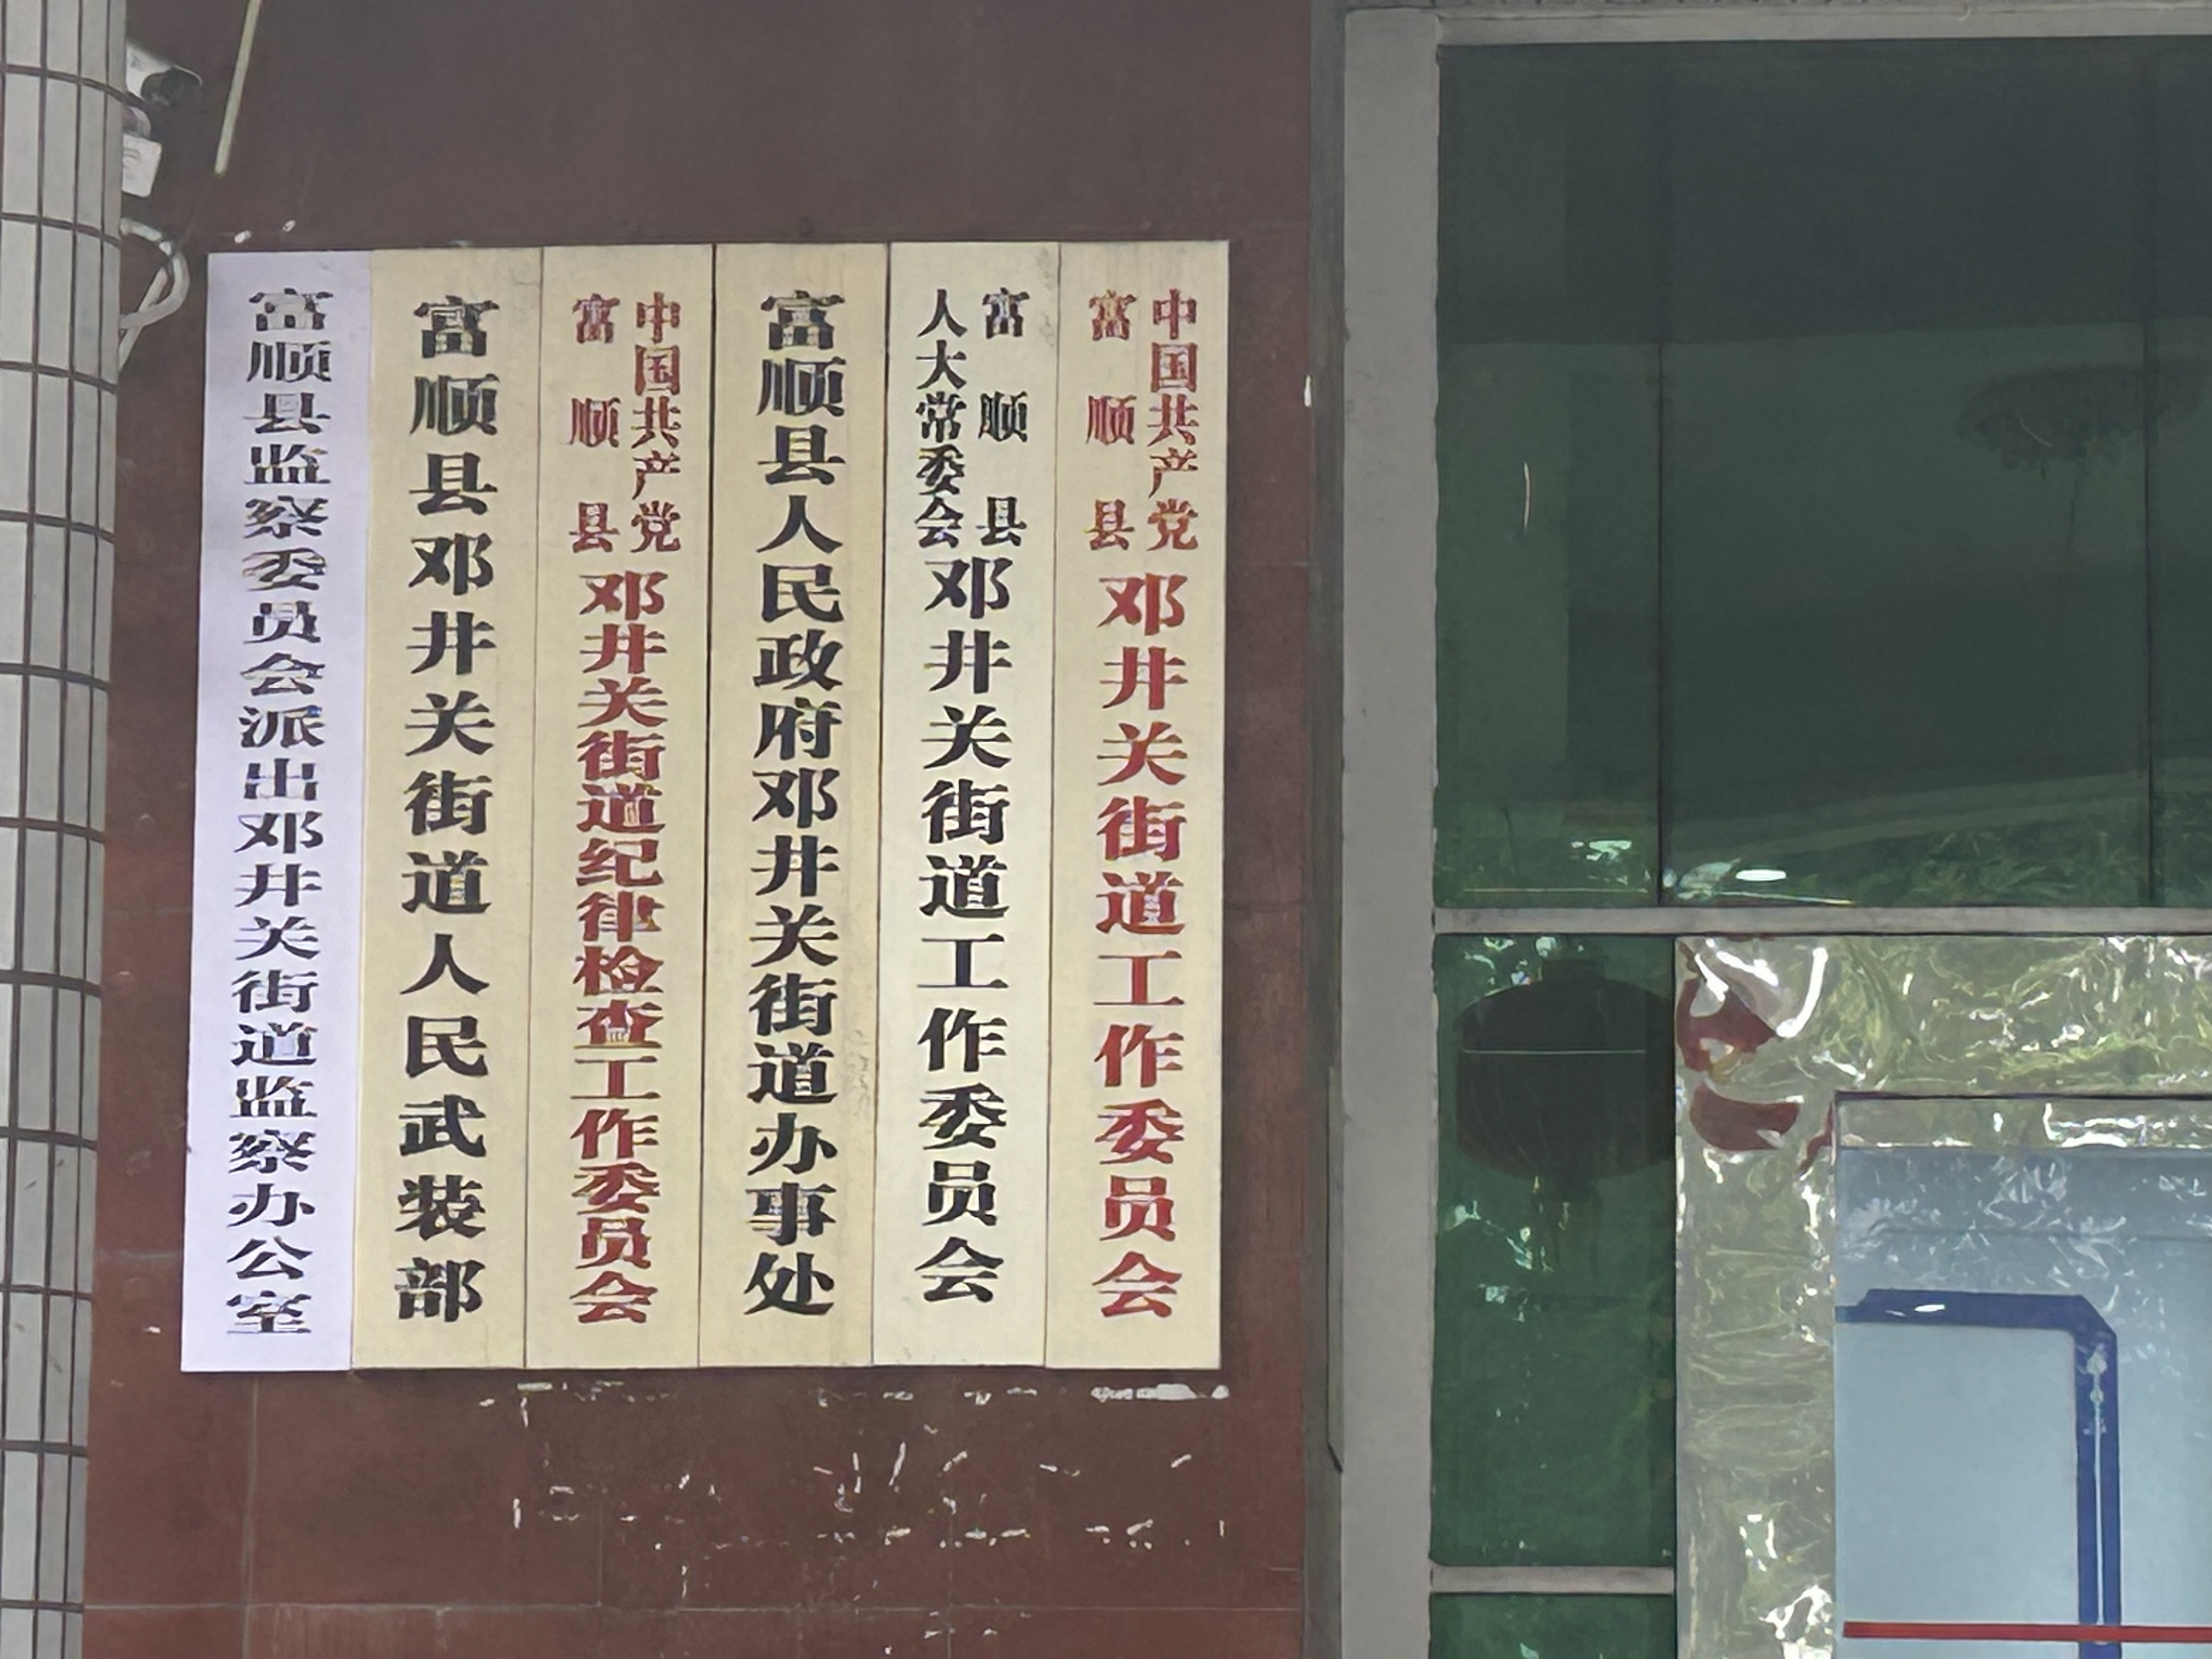 中国共产党
富顺县
邓井关街道工作委员会
富顺县
人大常委会
邓井关街道工作委员会
富顺县人民政府邓井关街道办事处
中国共产党
富顺县
邓井关街道纪律检查工作委员会
富顺县邓井关街道人民武装部
富顺县监察委员会派出邓井关街道监察办公室